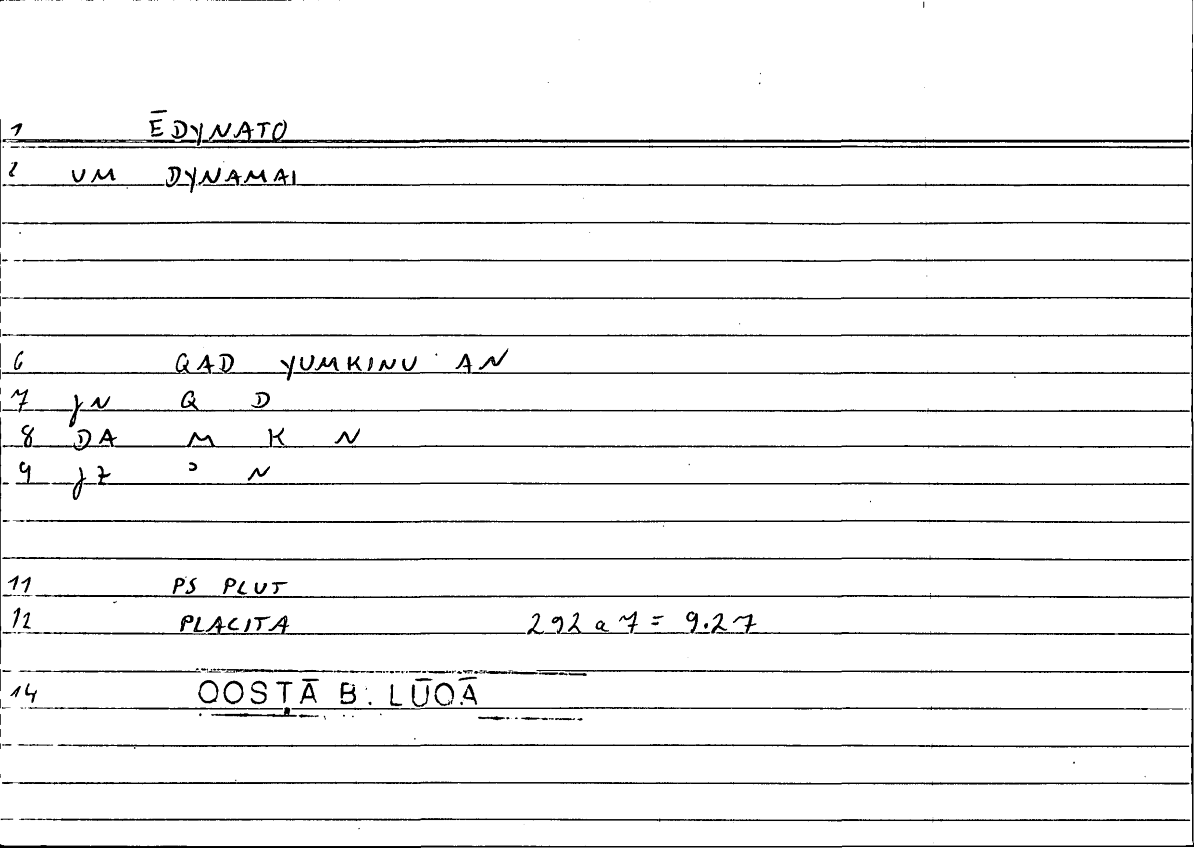 1 ĒDYNATO
2 UM DYNAMAI
6 QAD YUMKINU AN
7 JN Q D
8 DA M K N
9 JZ ʾ N
11 PS PLUT
12 PLACITA 292 a 7 = 9.27
14 QOSṬĀ B. LŪQĀ